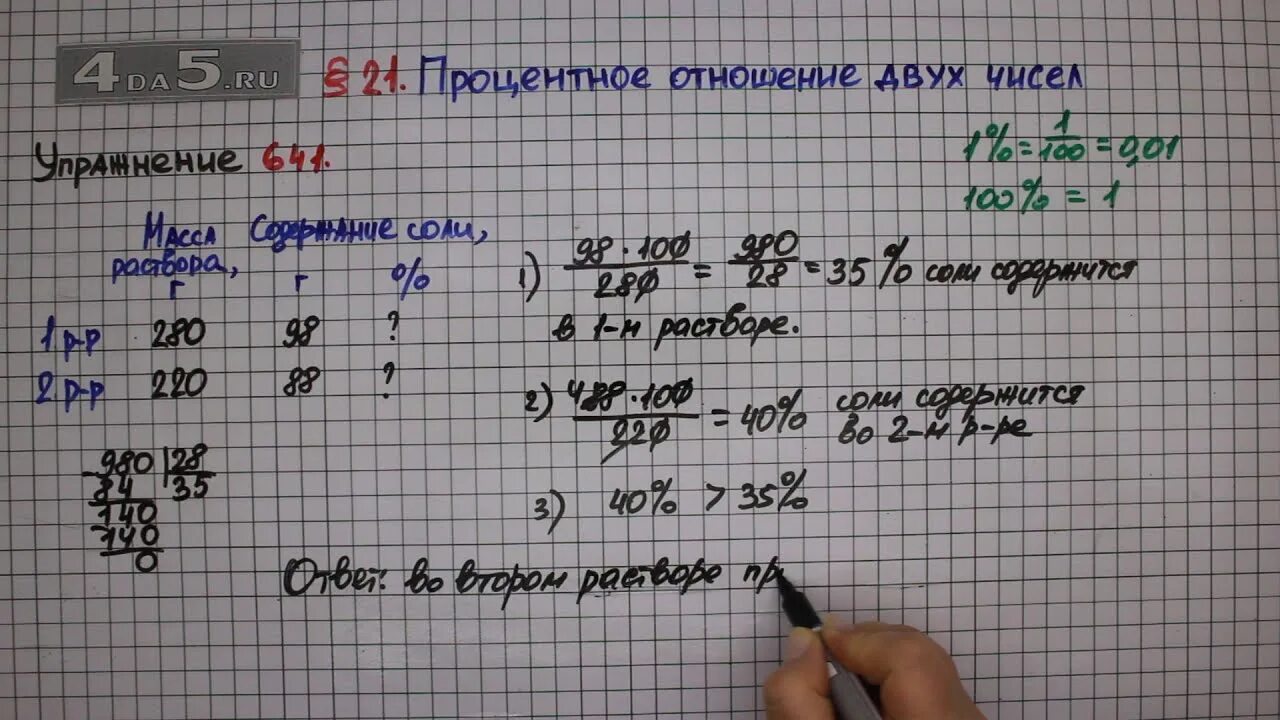 4DA5.RU
§ 21. Процентное отношение двух чисел
Упражнение 641.
1% = 1/100 = 0,01
100% = 1
Масса раствора, г
Содержание соли, г %
1 р-р 280 98 ?
2 р-р 220 88 ?
980 | 28
84 35
140
140
0
1) 98 · 100 / 280 = 980 / 28 = 35% соли содержится
в 1-м растворе.
2) 4 88 · 100 / 220 = 40% соли содержится
во 2-м р-ре
3) 40% > 35%
Ответ: во втором растворе пр